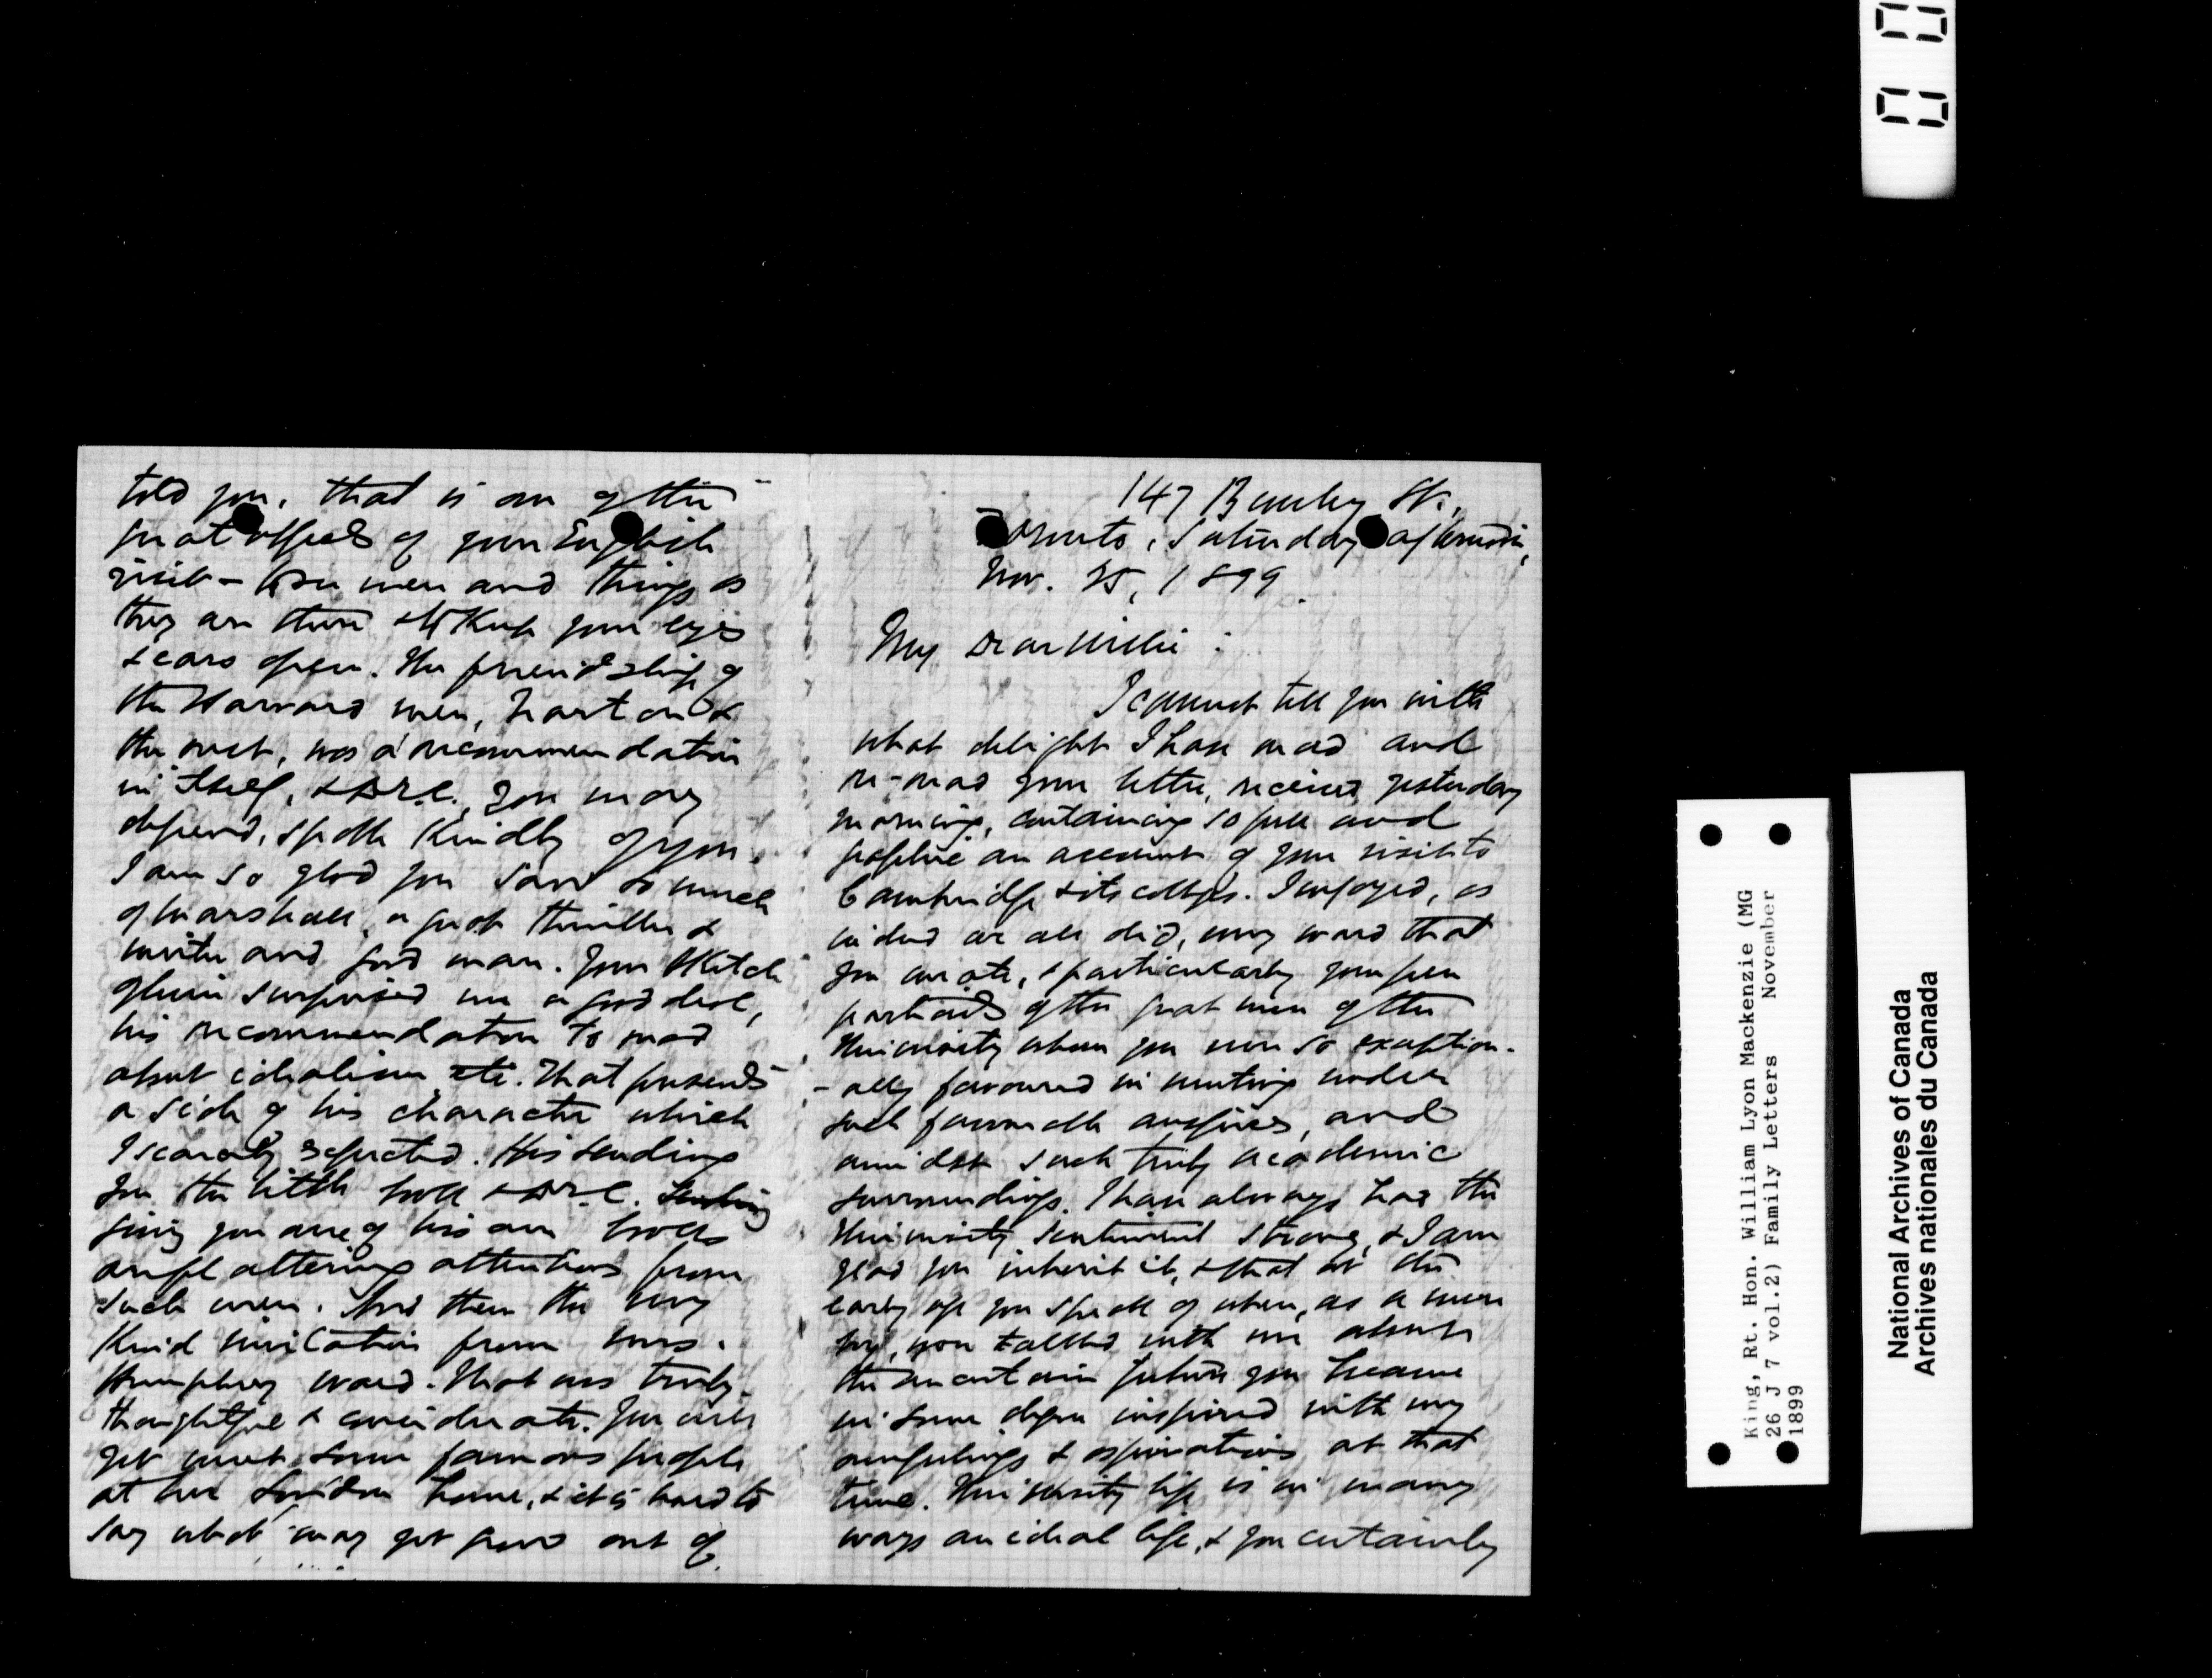 147 Beverley St.,
Toronto, Saturday afternoon,
Nov. 25, 1899.
My dear Willie:
I cannot tell you with
what delight I have read and
re-read your letter, received yesterday
morning, containing so full and
graphic an account of your visit to
Cambridge & its colleges. I enjoyed, as
indeed we all did, every word that
you wrote, & particularly your pen
portraits of the great men of the
University whom you were so exception-
-ally favoured in meeting under
such favourable auspices, and
amidst such truly academic
surroundings. I have always had the
University sentiment strong, & I am
glad you inherit it, & that at the
early age you speak of when, as a mere
boy, you talked with me about
the uncertain future you became
in some degree inspired with my
own feelings & aspirations at that
time. University life is in many
ways an ideal life, & you certainly
told you. That is one of the
great effects of your English
visit – to see men and things as
they are there & to keep your eyes
& ears open. The friendship of
the Harvard men, Norton &
the rest, was a recommendation
in itself, & they, you may
depend, spoke kindly of you.
I am so glad you saw so much
of Marshall, a great thinker &
writer and good man. Your sketch
of him surprised me a good deal,
his recommendation to read
about idealism etc. That presents
a side of his character which
I scarcely expected. His sending
you the little book &
giving you one of his own books
are flattering attentions from
such men. And then the very
kind invitation from Mrs.
Humphrey Ward. That was truly
thoughtful & considerate. You will
get meet some famous people
at her London home, & it is hard to
say what may get good out of
King, Rt. Hon. William Lyon Mackenzie (MG
26 J 7 vol.2) Family Letters November
1899
National Archives of Canada
Archives nationales du Canada